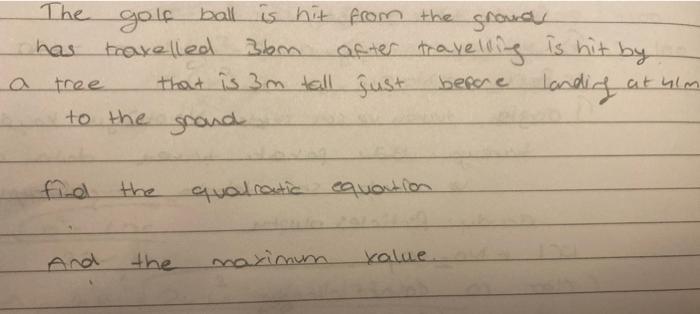 The golf ball is hit from the ground
has travelled 36m after travelling is hit by
a tree that is 3m tall just before landing at 41m
to the ground
find the qualratic equation
And the maximum value.